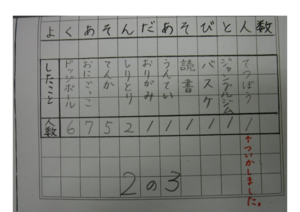 よくあそんだあそびと人数
したこと
ドッジボール
おにごっこ
てんか
しりとり
おりがみ
うんてい
読書
バスケ
ジャングルジム
てつぼう
人数 6 7 5 2 1 1 1 1 1 1
↑ついかしました。
2の3